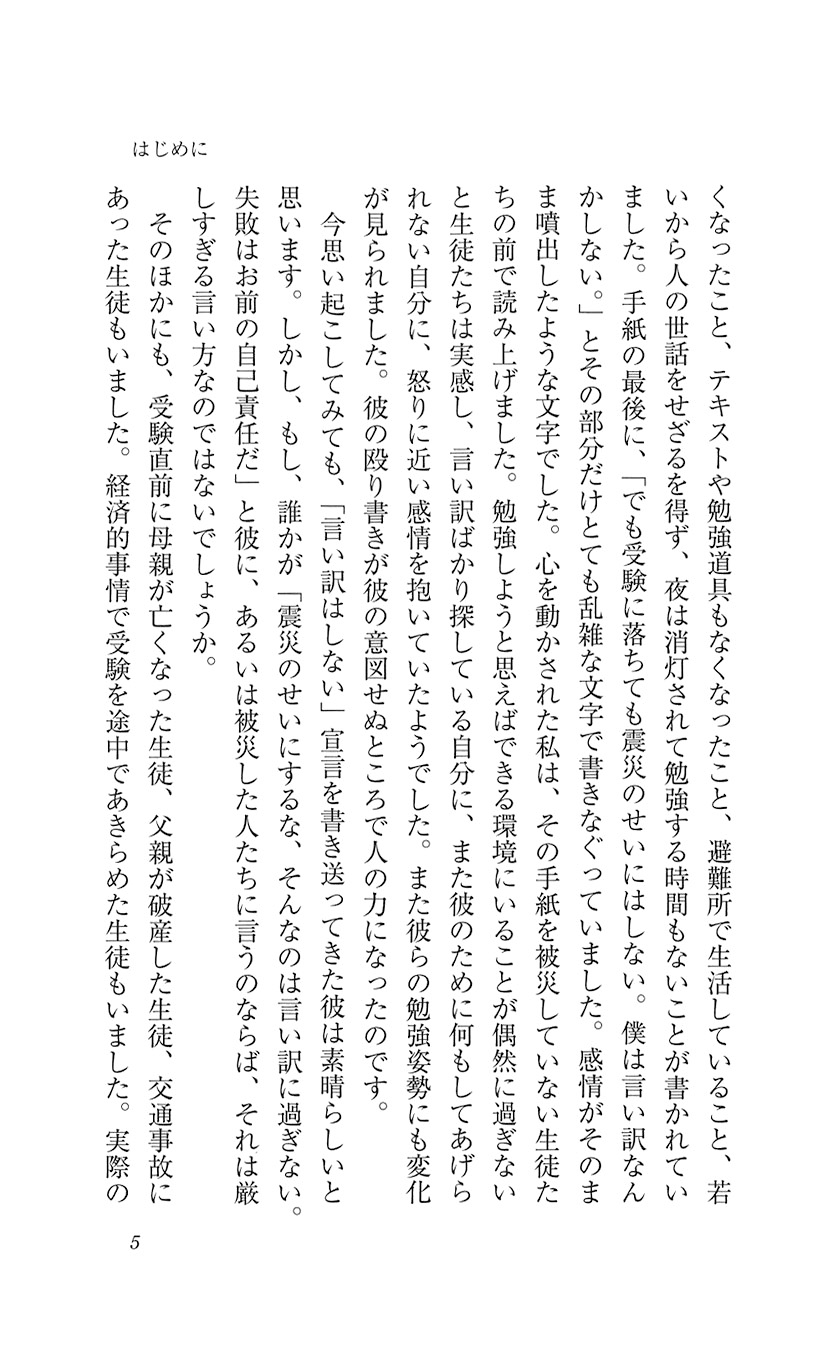 はじめに
くなったこと、テキストや勉強道具もなくなったこと、避難所で生活していること、若
いから人の世話をせざるを得ず、夜は消灯されて勉強する時間もないことが書かれてい
ました。手紙の最後に、「でも受験に落ちても震災のせいにはしない。僕は言い訳なん
かしない。」とその部分だけとても乱雑な文字で書きなぐっていました。感情がそのま
ま噴出したような文字でした。心を動かされた私は、その手紙を被災していない生徒た
ちの前で読み上げました。勉強しようと思えばできる環境にいることが偶然に過ぎない
と生徒たちは実感し、言い訳ばかり探している自分に、また彼のために何もしてあげら
れない自分に、怒りに近い感情を抱いていたようでした。また彼らの勉強姿勢にも変化
が見られました。彼の殴り書きが彼の意図せぬところで人の力になったのです。
今思い起こしてみても、「言い訳はしない」宣言を書き送ってきた彼は素晴らしいと
思います。しかし、もし、誰かが「震災のせいにするな、そんなのは言い訳に過ぎない。
失敗はお前の自己責任だ」と彼に、あるいは被災した人たちに言うのならば、それは厳
しすぎる言い方なのではないでしょうか。
そのほかにも、受験直前に母親が亡くなった生徒、父親が破産した生徒、交通事故に
あった生徒もいました。経済的事情で受験を途中であきらめた生徒もいました。実際の
5